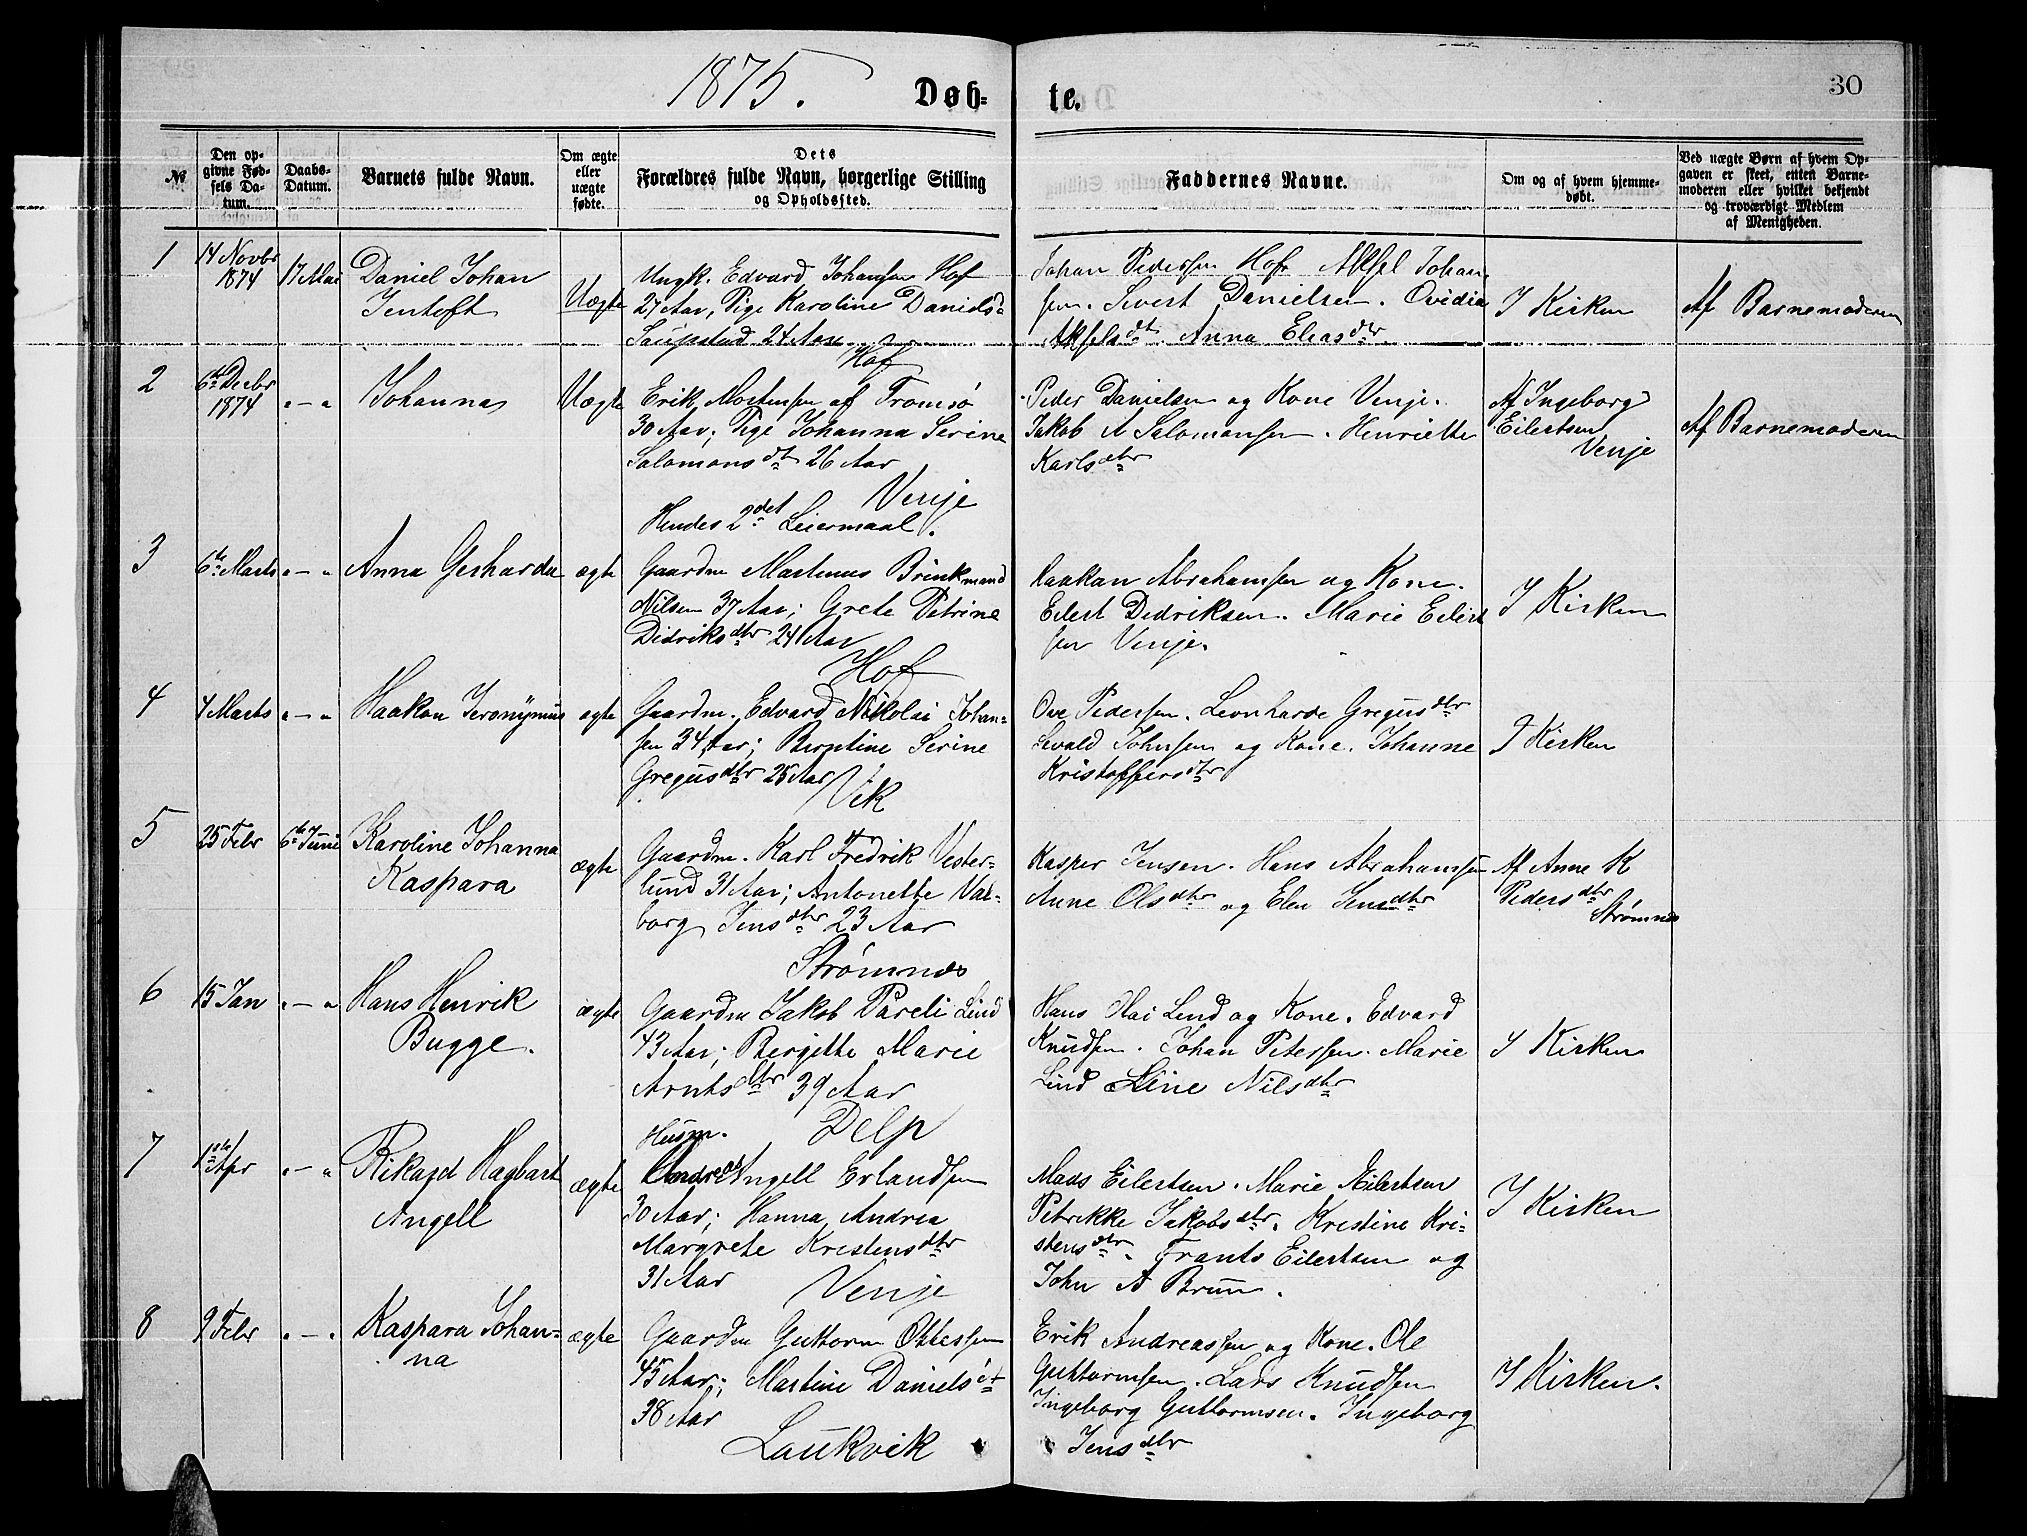 1875.
Døb-
te.
30
№
Den op-
givne Fød-
sels Da-
tum.
Daabs-
Datum.
Barnets fulde Navn.
Om ægte
eller
uægte
fødte.
Dets
Forældres fulde Navn, borgerlige Stilling
og Opholdssted.
Faddernes Navne.
Om og af hvem hjemme-
døbt.
Ved uægte Børn af hvem Op-
gaven er skeet, enten Barne-
moderen eller hvilket bekjendt
og troværdigt Medlem
af Menigheden.
1
14 Novbr
1874
17 Mai
Daniel Johan
Jentoft
Uægte
Ungk. Edvard Johansen Hof
27 Aar, Pige Karoline Daniels
Saupstad 24 Aar
Hof
Johan Pedersen Hof. Aksel Johan
sen. Sivert Danielsen. Ovidia
Aksels dt. Anna Elias dtr
I Kirken
Af Barnemoderen
2
6te Decbr
1874
" - "
Johanna
Uægte
Erik Mortensen af Tromsø
30 Aar; Pige Johanna Serine
Salomons dt 26 Aar
Venje
Hendes 2det Leiermaal.
Peder Danielsen og Kone Venje.
Jakob A Salomonsen. Henriette
Karls dtr
Af Ingeborg
Eilertsen
Venje
Af Barnemoderen
3
6te Marts
" - "
Anna Gerharda
ægte
Gaardm Martinus Brinkmand
Nilsen 37 Aar; Grete Petrine
Didriks dtr 24 Aar
Hof
Haakon Abrahamsen og Kone.
Eilert Dedriksen. Marie Eilert
sen Venje.
I Kirken
4
4 Marts
" - "
Haakon Jeronymus
ægte
Gaardm. Edvard Nikolai Johan-
sen 34 Aar; Berntine Serine
Gregus dtr 25 Aar
Vik
Ove Pedersen. Leonharde Gregus dtr
Sevald Johnsen og Kone. Johanne
Kristoffers dtr
I Kirken
5
25 Febr
6te Juni
Karoline Johanna
Kaspara
ægte
Gaardm. Karl Fredrik Vester-
lund 31 Aar; Antonette Val-
borg Jens dtr 23 Aar
Strømnes
Kasper Jensen. Hans Abrahamsen
Anne Ols dtr og Elen Jens dtr
Af Anne K
Peders dtr
Strømnes
6
15 Jan
" - "
Hans Henrik
Bugge.
ægte
Gaardm Jakob Pareli Lind
43 Aar; Bergitte Marie
Arnts dtr 39 Aar
Delp
Hans Olai Lind og Kone. Edvard
Knudsen. Johan Petersen. Marie
Lind Line Nils dtr
I Kirken
7
1ste Apr
" - "
Rikard Hagbart
Angell
ægte
Husm.
Andreas Angell Erlandsen
30 Aar; Hanna Andrea
Margrete Kristens dtr
31 Aar
Venje
Mads Eilertsen. Marie Eilertsen
Petrikke Jakobs dtr. Kristine Kri-
stens dtr. Frants Eilertsen og
John A Bruun.
I Kirken
8
9 Febr
" - "
Kaspara Johan-
na
ægte
Gaardm Guttorm Ottesen
45 Aar; Martine Daniels dt
38 Aar
Laukvik
Erik Andreassen og Kone. Ole
Guttormsen. Lars Knudsen
Ingeborg Guttormsen. Ingeborg
Jens dtr
I Kirken.